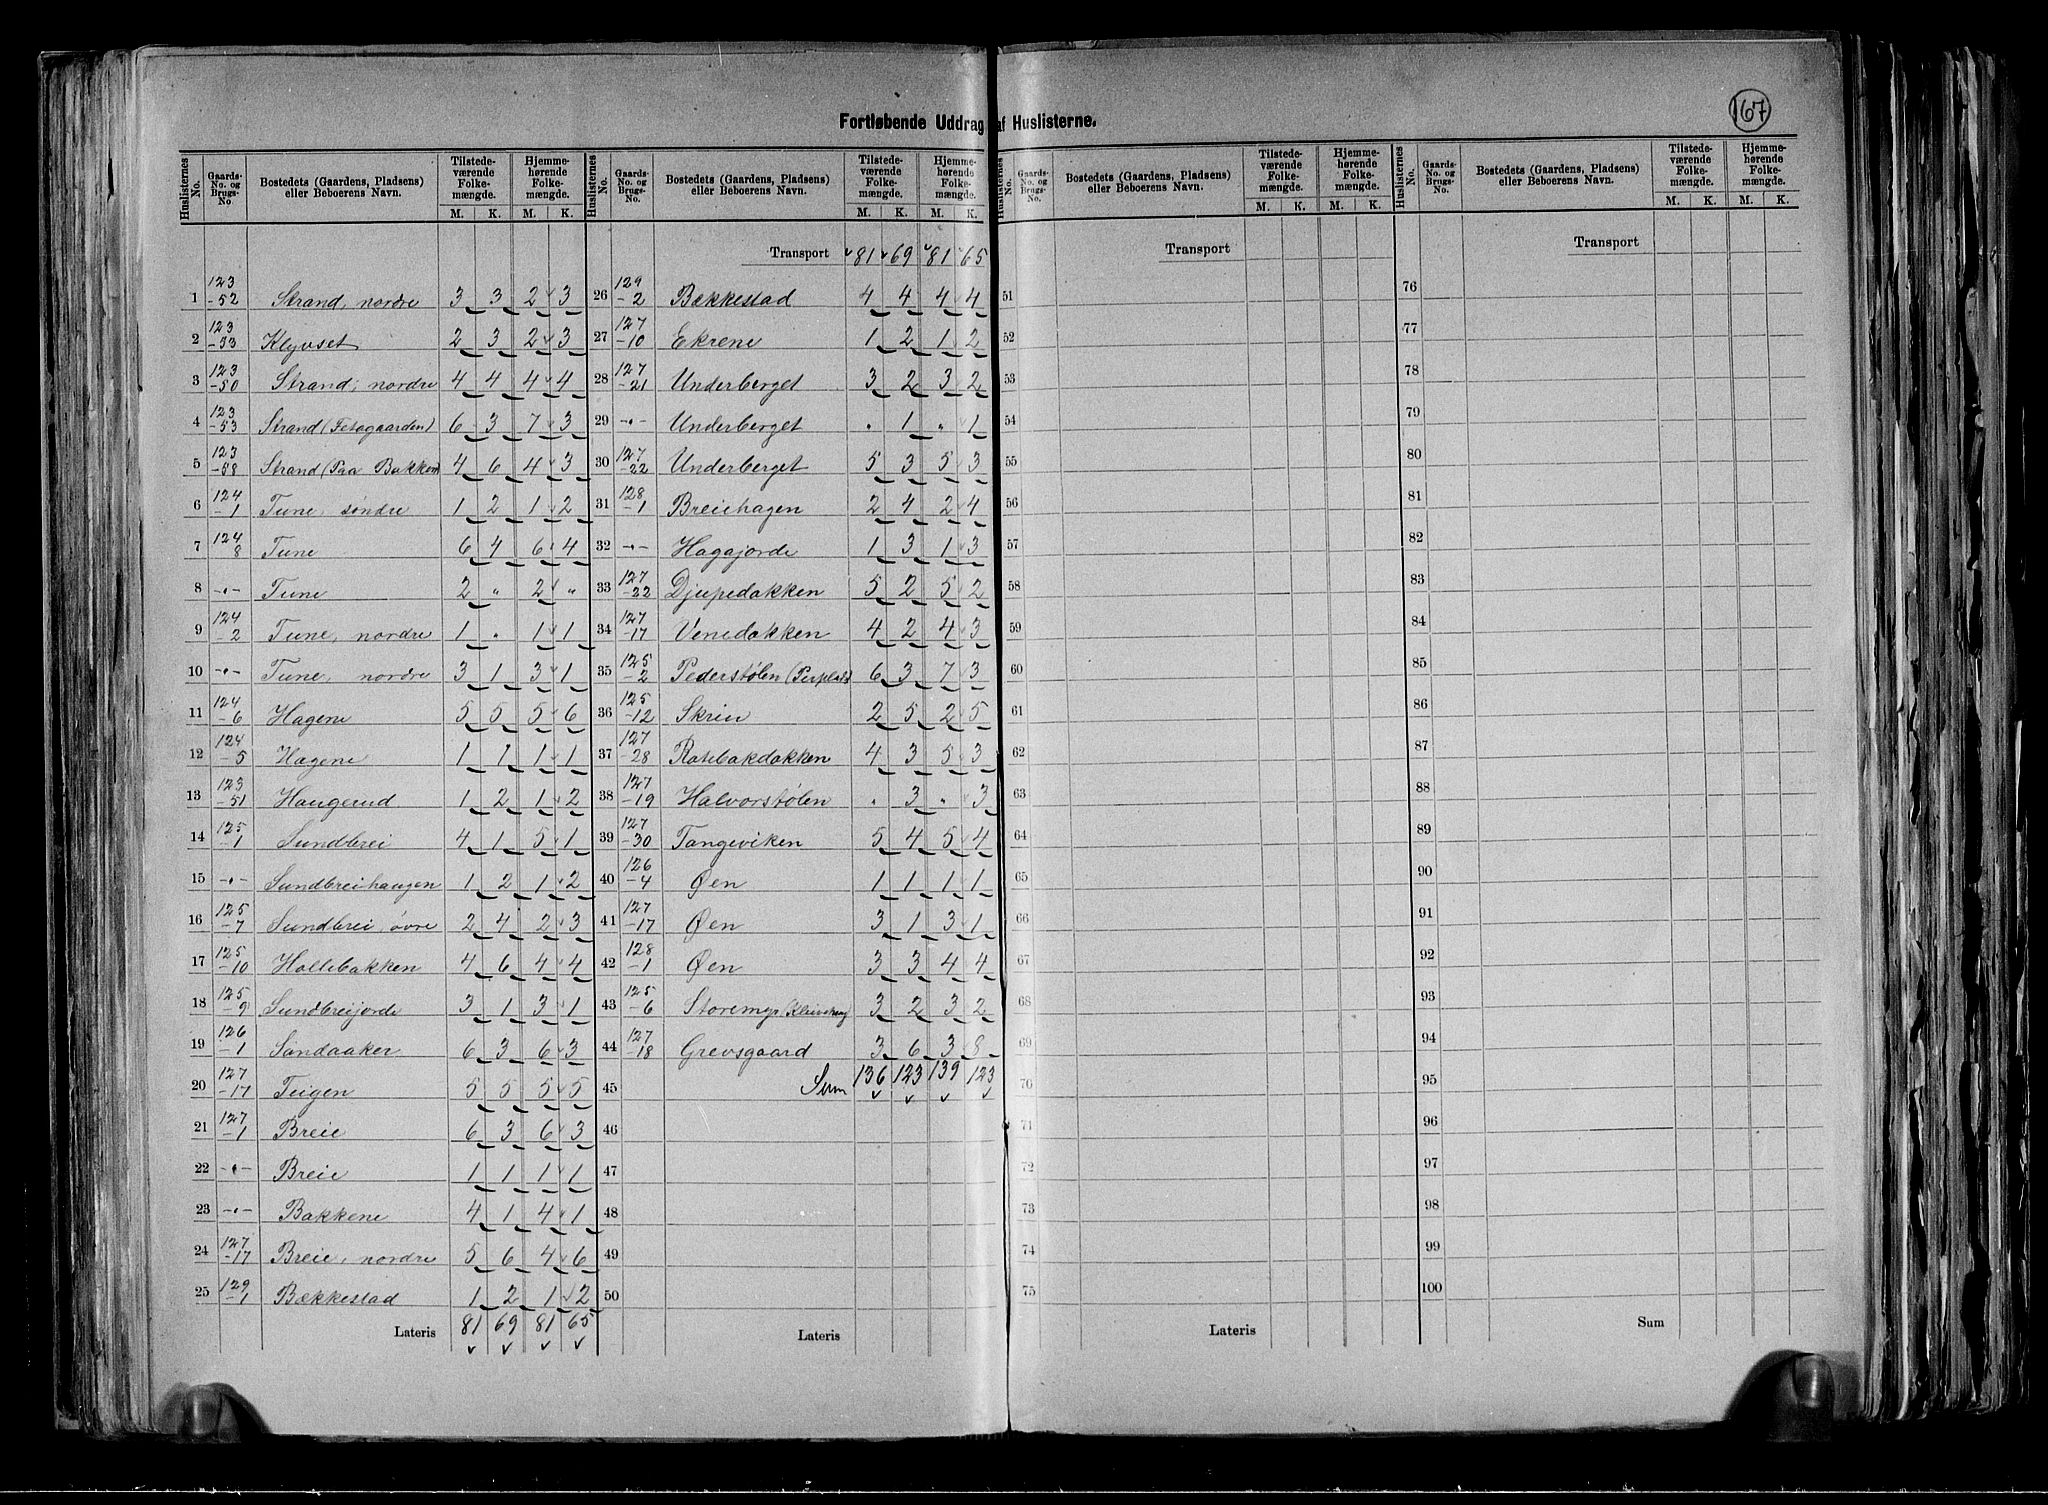 167
Fortløbende Uddrag af Huslisterne.
Huslisternes No. Gaards-No. og Brugs-No. Bostedets (Gaardens, Pladsens) eller Beboerens Navn. Tilstedeværende Folkemængde. M. K. Hjemmehørende Folkemængde. M. K.
1 123-52 Strand, nordre 3 3 2 3
2 123-33 Klyvset 2 3 2 3
3 123-50 Strand, nordre 4 4 4 4
4 123-53 Strand (Fetogaarden) 6 3 7 3
5 123-58 Strand (Paa Bakken) 4 6 4 3
6 124-1 Tune, søndre 1 2 1 2
7 124 8 Tune 6 4 6 4
8 -"- Tune 2 " 2 "
9 124-2 Tune, nordre 1 " 1 1
10 -"- Tune, nordre 3 1 3 1
11 124-6 Hagene 5 5 5 6
12 124-5 Hagene 1 1 1 1
13 123-51 Haugerud 1 2 1 2
14 125-1 Sundbrei 4 1 5 1
15 -"- Sundbreihaugen 1 2 1 2
16 125-7 Sundbrei, øvre 2 4 2 3
17 125-10 Hollebakken 4 6 4 4
18 125-9 Sundbreijorde 3 1 3 1
19 126-1 Sandaaker 6 3 6 3
20 127-17 Teigen 5 5 5 5
21 127-1 Breie 6 3 6 3
22 -"- Breie 1 1 1 1
23 -"- Bakkene 4 1 4 1
24 127-17 Breie, nordre 5 6 4 6
25 129-1 Bækkestad 1 2 1 2
Lateris 81 69 81 65
Huslisternes No. Gaards-No. og Brugs-No. Bostedets (Gaardens, Pladsens) eller Beboerens Navn. Tilstedeværende Folkemængde. M. K. Hjemmehørende Folkemængde. M. K.
Transport 81 69 81 65
26 129-2 Bækkestad 4 4 4 4
27 127-10 Ekrene 1 2 1 2
28 127-21 Underberget 3 2 3 2
29 -"- Underberget " 1 " 1
30 127-22 Underberget 5 3 5 3
31 128-1 Breiehagen 2 4 2 4
32 -"- Hagajorde 1 3 1 3
33 127-22 Djupedokken 5 2 5 2
34 127-17 Venedokken 4 2 4 3
35 125-2 Pederstølen (Perplads) 6 3 7 3
36 125-12 Skrin 2 5 2 5
37 127-28 Ratebakdokken 4 3 5 3
38 127-19 Halvorstølen " 3 " 3
39 127-30 Tangeviken 5 4 5 4
40 126-4 Øen 1 1 1 1
41 127-17 Øen 3 1 3 1
42 128-1 Øen 3 3 4 4
43 125-6 Storemyr 3 2 3 2
44 127-18 Grevsgaard 3 6 3 8
45 Sum 136 123 139 123
46
47
48
49
50
Lateris
Huslisternes No. Gaards-No. og Brugs-No. Bostedets (Gaardens, Pladsens) eller Beboerens Navn. Tilstedeværende Folkemængde. M. K. Hjemmehørende Folkemængde. M. K.
Transport
51
52
53
54
55
56
57
58
59
60
61
62
63
64
65
66
67
68
69
70
71
72
73
74
75
Lateris
Huslisternes No. Gaards-No. og Brugs-No. Bostedets (Gaardens, Pladsens) eller Beboerens Navn. Tilstedeværende Folkemængde. M. K. Hjemmehørende Folkemængde. M. K.
Transport
76
77
78
79
80
81
82
83
84
85
86
87
88
89
90
91
92
93
94
95
96
97
98
99
100
Sum